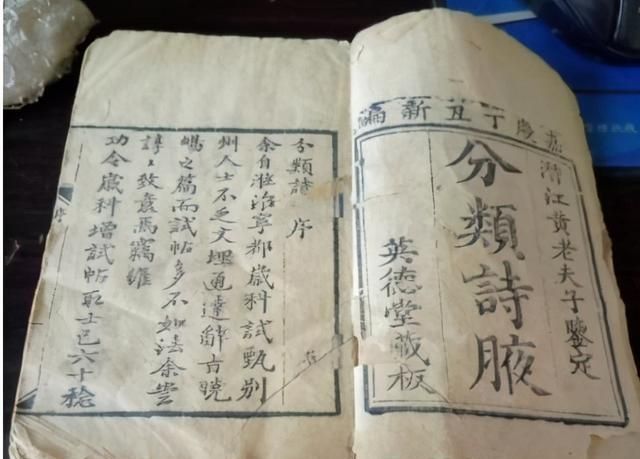 嘉慶丁丑新編
清江黃老夫子鑒定
分類詩腋
英德堂藏板
分類詩 序
余自涖治寧都歲科試甄別
州人士不乏文理通達辭旨曉
暢之篇而試帖多不如法余嘗
諄〻致意焉竊維
功令歲科增試帖取士已六十稔
序